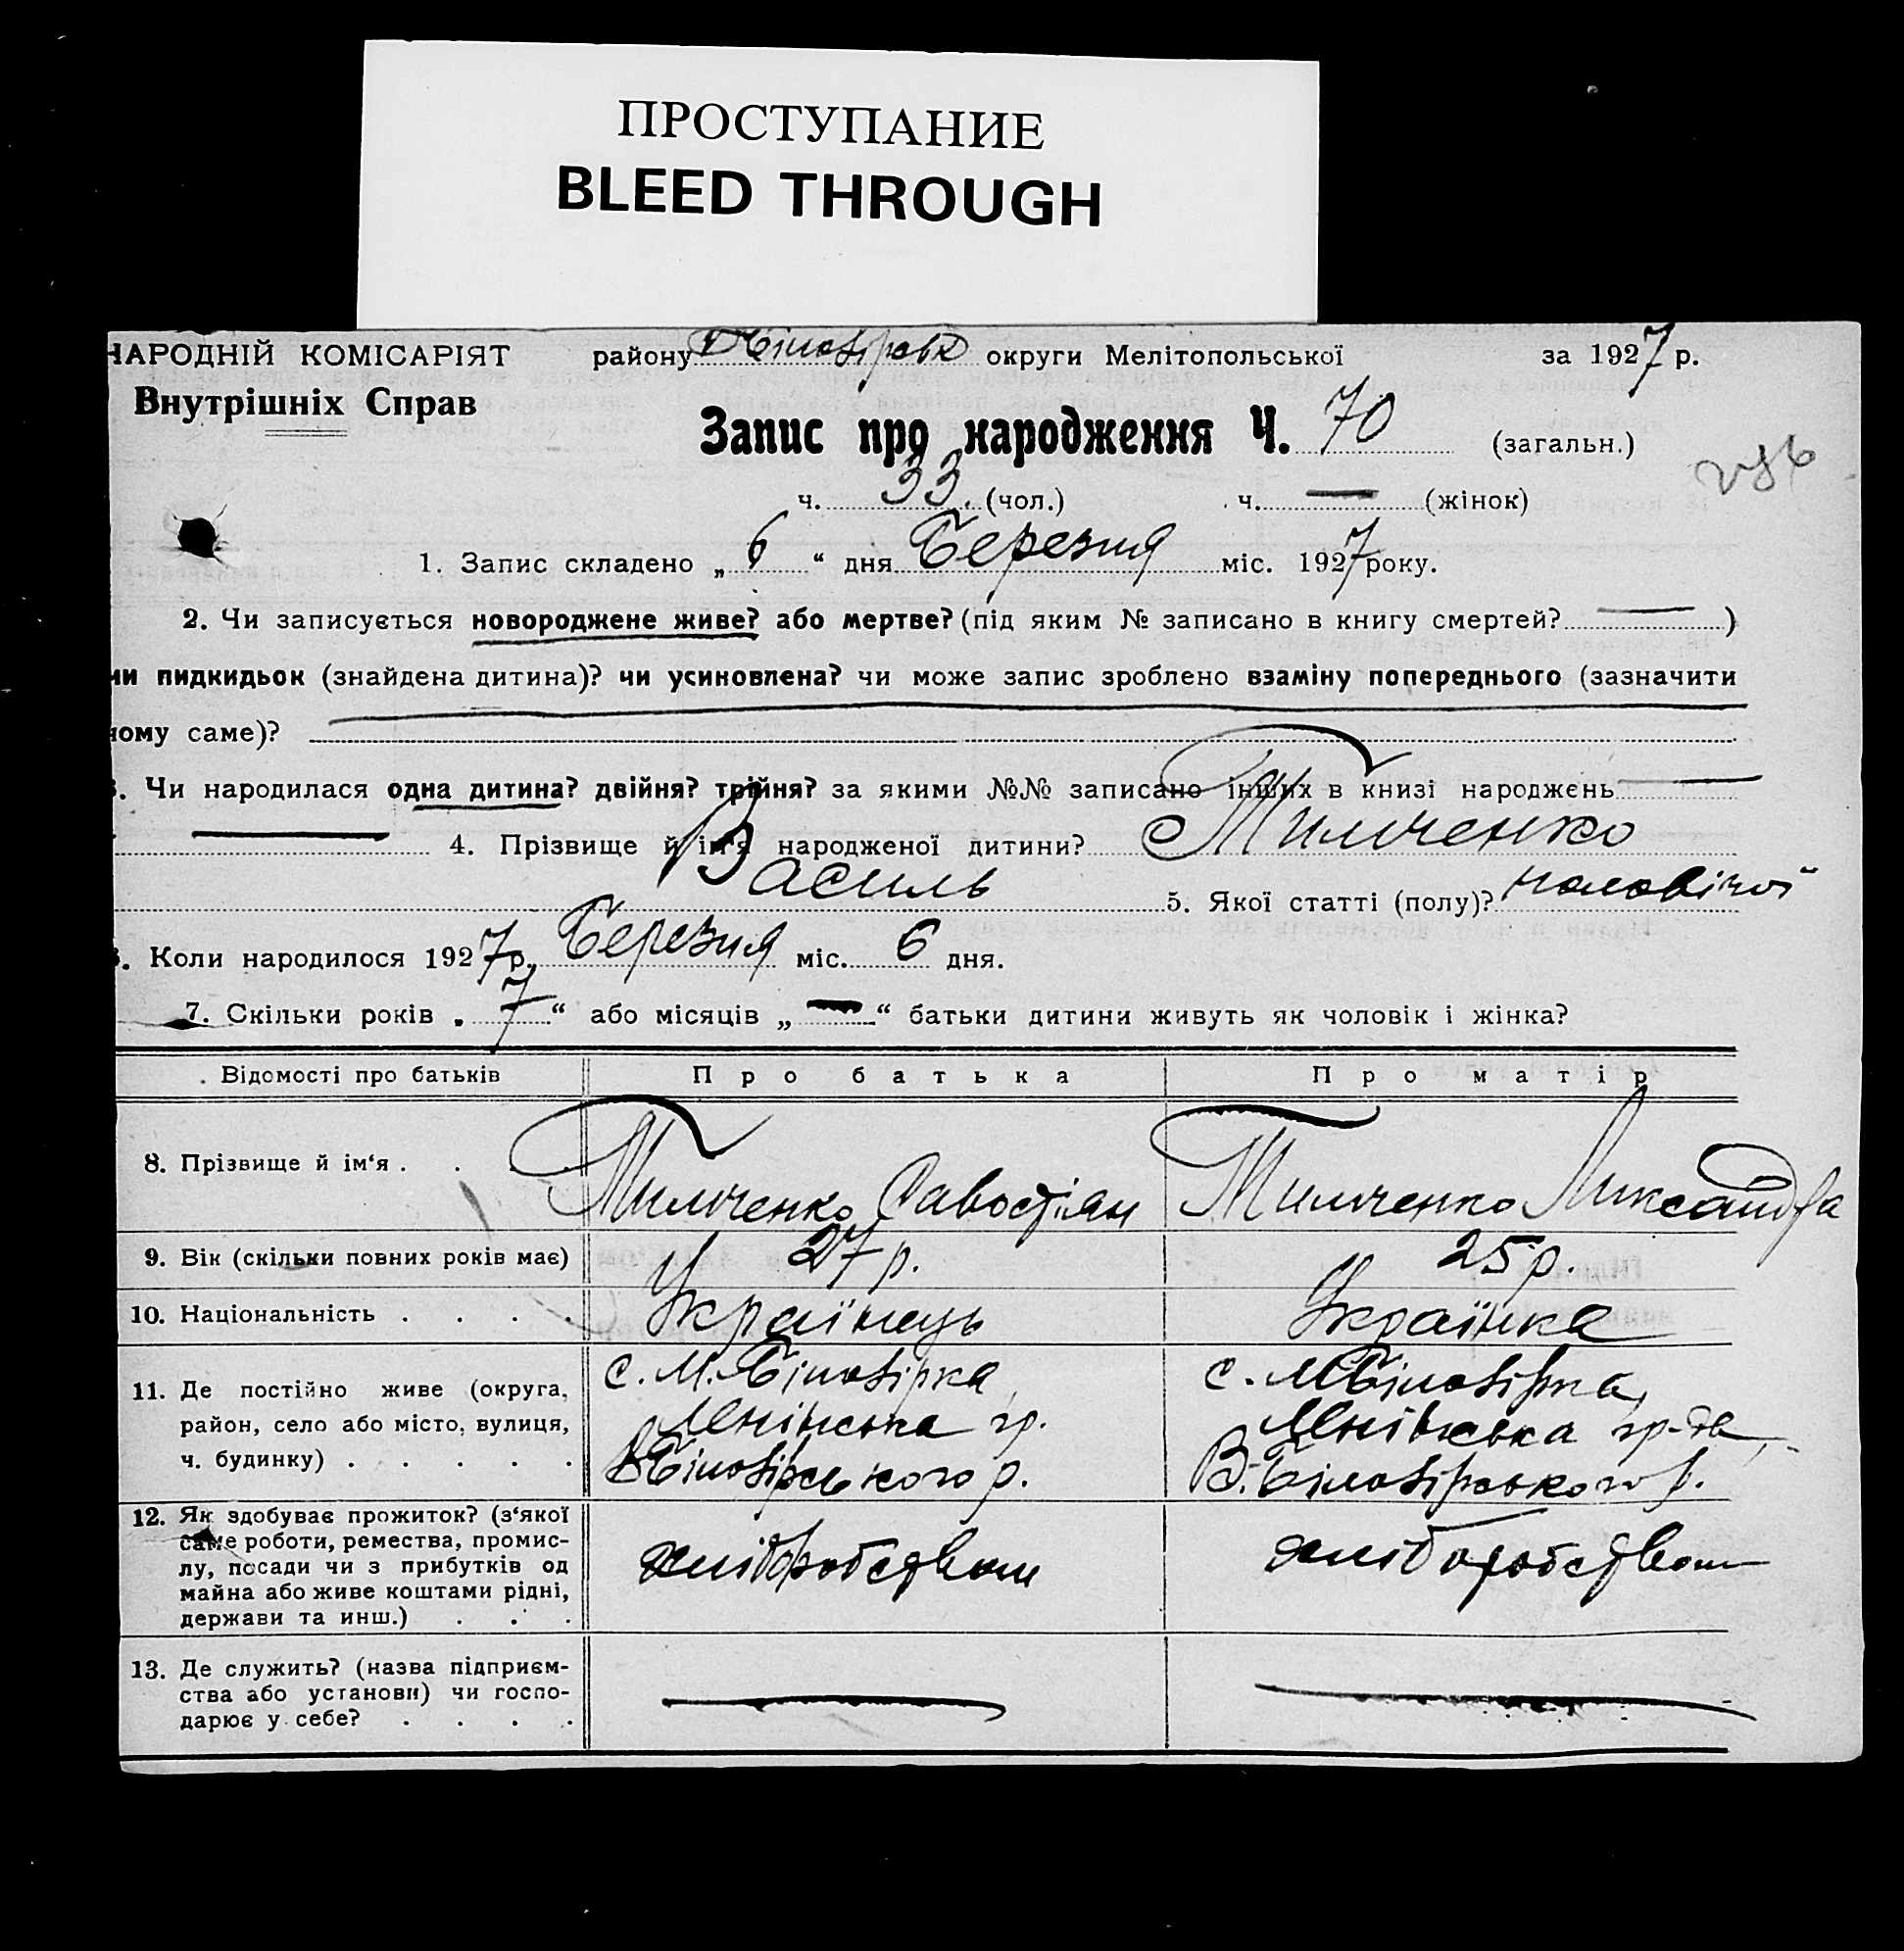 ПРОСТУПАНИЕ
BLEED THROUGH
НАРОДНІЙ КОМІСАРІЯТ району округи Мелітопольської за 1927 р.
Внутрішніх Справ
Запис про народження Ч. 70 (загальн.)
ч. 33. (чол.) ч. — (жінок)
1. Запис складено „ 6 “ дня Березня міс. 1927 року.
2. Чи записується новороджене живе? або мертве? (під яким № записано в книгу смертей? — )
чи пидкидьок (знайдена дитина)? чи усиновлена? чи може запис зроблено взаміну попереднього (зазначити
чому саме)?
3. Чи народилася одна дитина? двійня? трійня? за якими №№ записано інших в книзі народжень —
— 4. Прізвище й ім'я народженої дитини? Тимченко
Василь 5. Якої статті (полу)? чоловічої
6. Коли народилося 1927 р. Березня міс. 6 дня.
7. Скільки років „ 7 “ або місяців „ — “ батьки дитини живуть як чоловік і жінка?
Відомості про батьків Про батька Про матір
8. Прізвище й ім'я . . . . Тимченко Савостіян Тимченко Ликсандра
9. Вік (скільки повних років має) 27 р. 25 р.
10. Національність . . . . Українець Українка
11. Де постійно живе (округа, с. М. Білозірка, с. М Білозірка,
район, село або місто, вулиця, Менівська гр.
ч. будинку) . . . . . В Білозірського р. В. Білозірського р.
12. Як здобуває прожиток? (з‘якої
саме роботи, ремества, промис-
лу, посади чи з прибутків од хліборобством хліборобством
майна або живе коштами рідні,
держави та инш.) . . .
13. Де служить? (назва підприєм-
ства або установи) чи госпо- — —
дарює у себе? . . . .